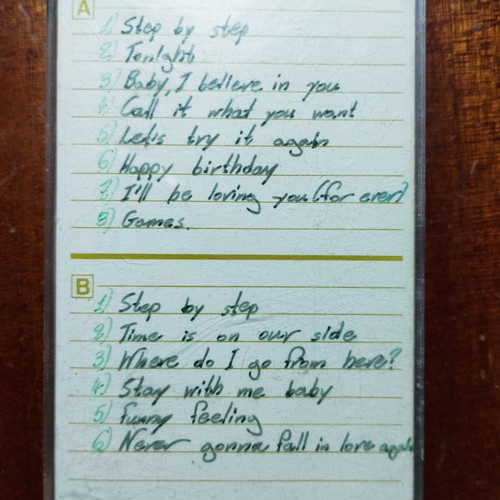 A
1) Step by step
2) Tonight
3) Baby, I believe in you
4) Call it what you want
5) Let's try it again
6) Happy birthday
7) I'll be loving you (for ever)
8) Games.
B
1) Step by step
2) Time is on our side
3) Where do I go from here?
4) Stay with me baby
5) Funny feeling
6) Never gonna fall in love again